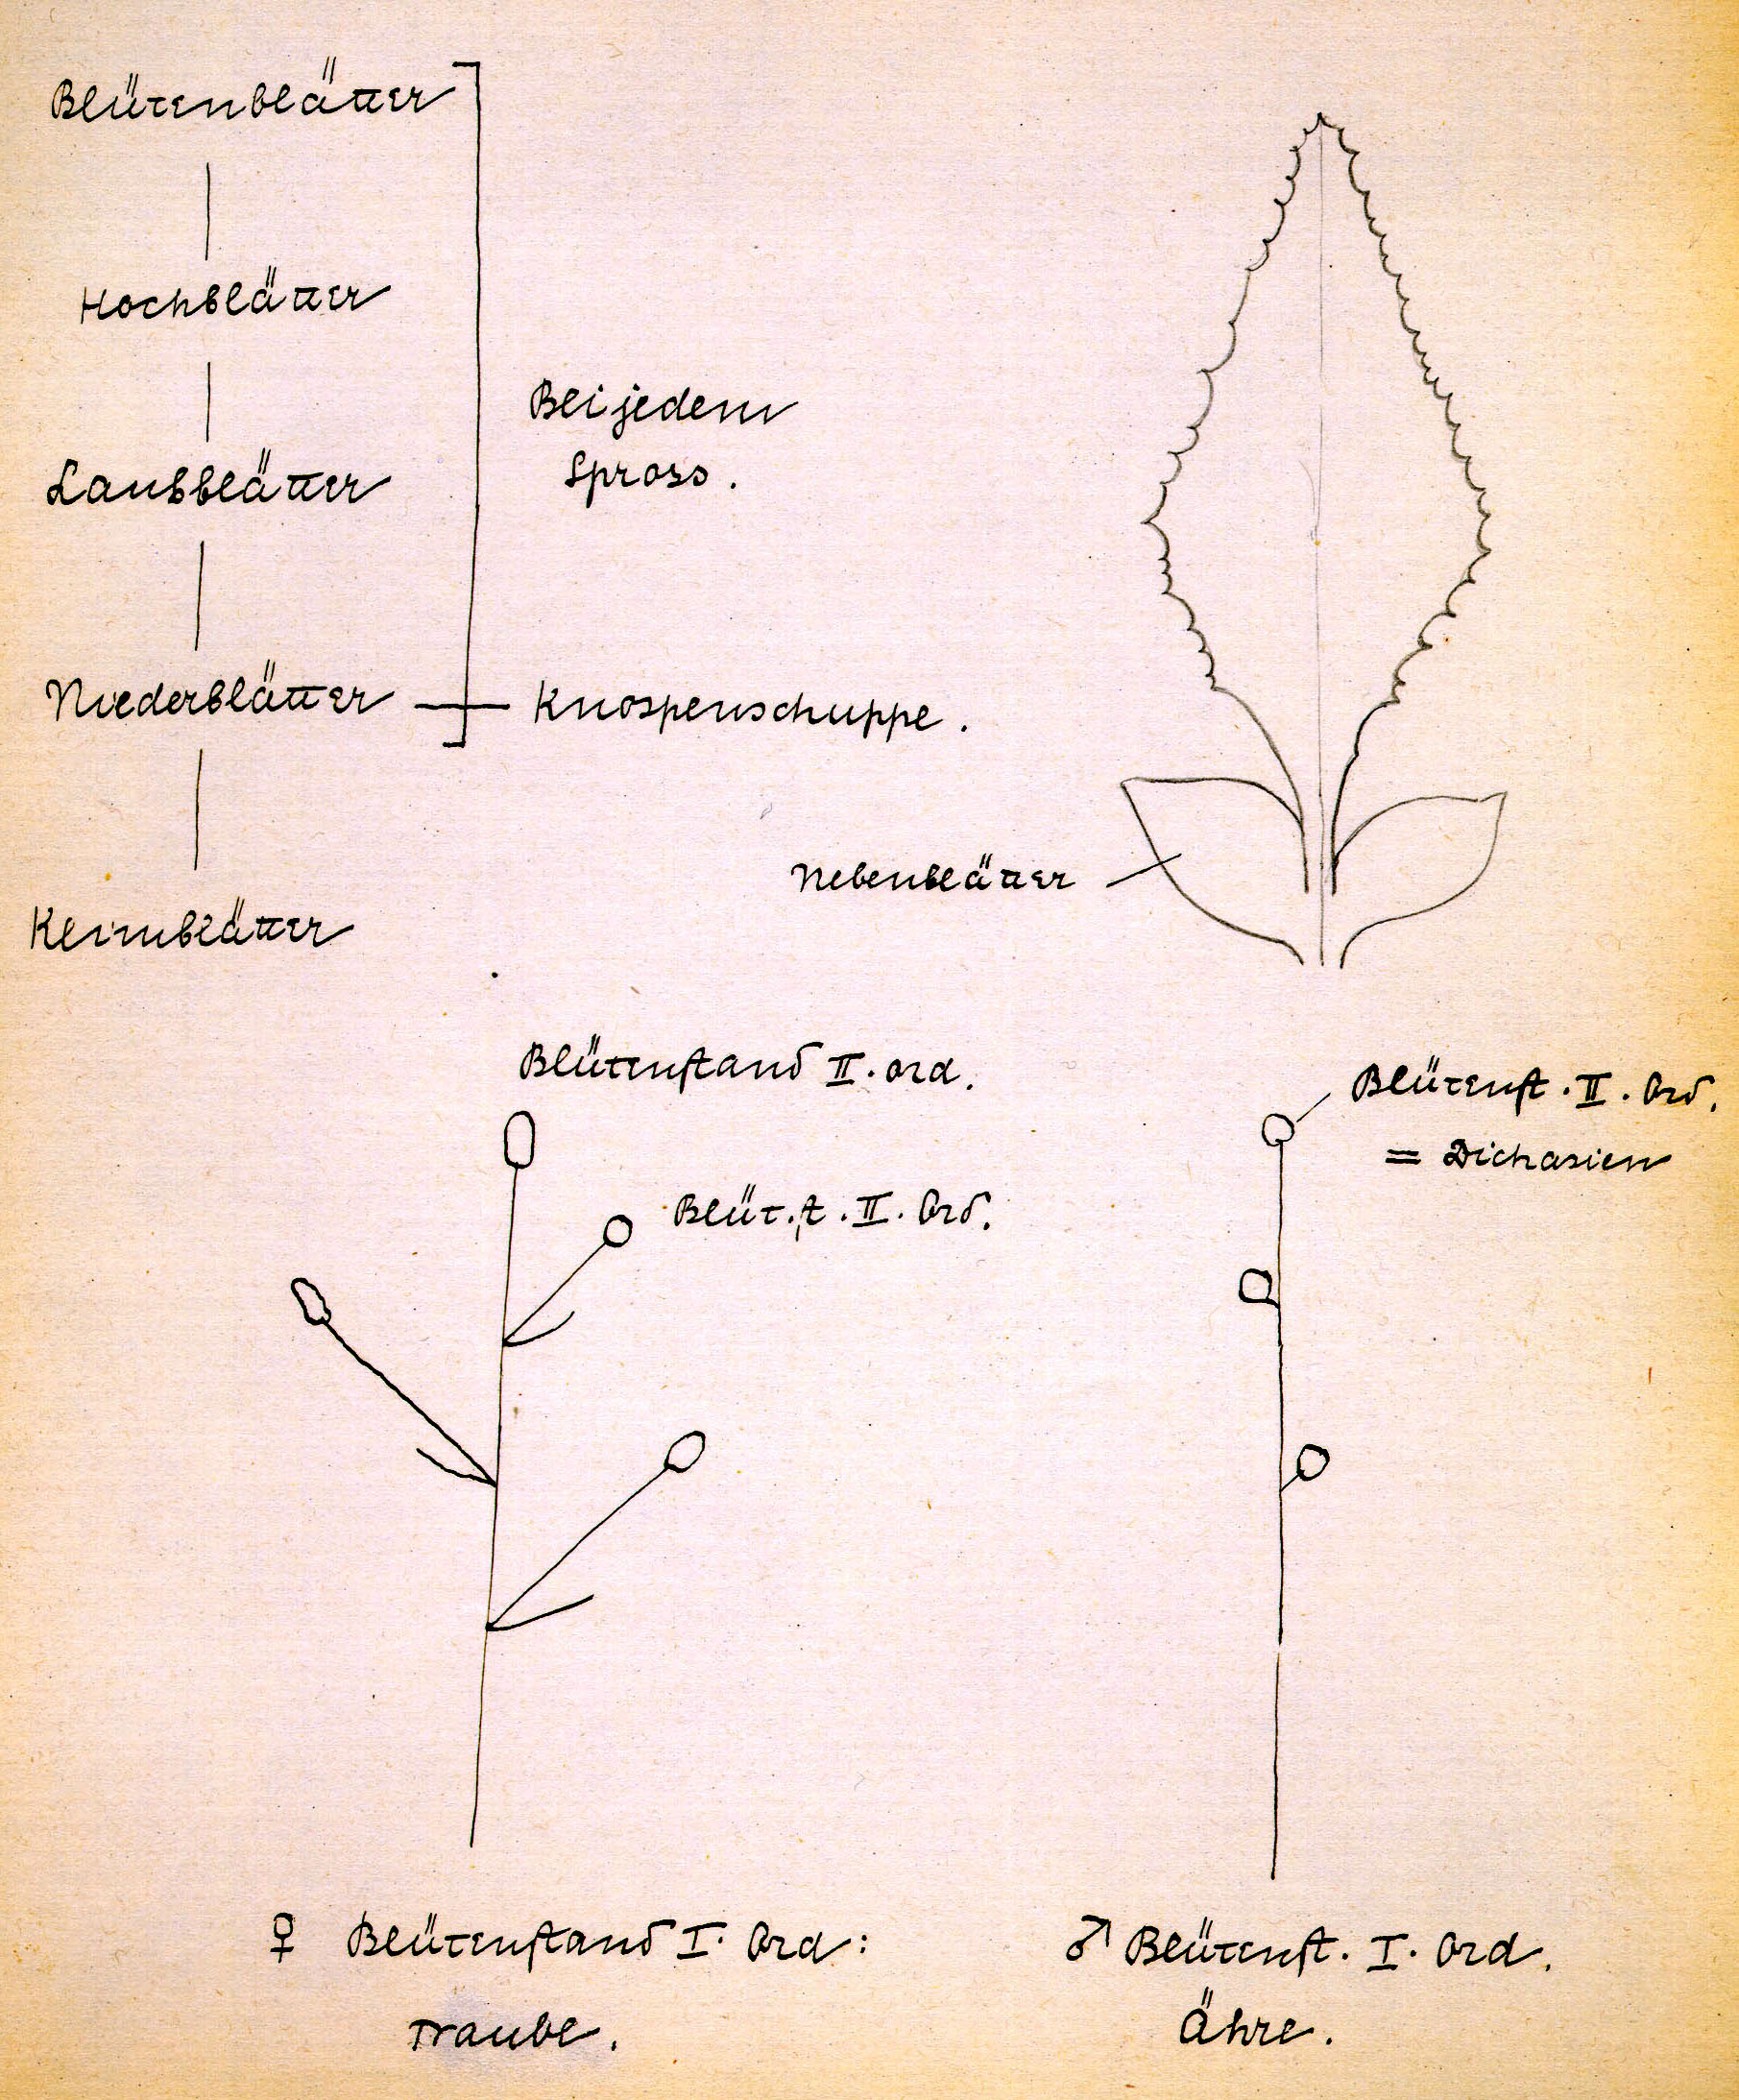 Blütenblätter
Hochblätter
Laubblätter
Bei jedem
Spross.
Niederblätter — Knospenschuppe.
Nebenblätter
Keimblätter
Blütenstand II. ord.
Blütenst. II. Ord.
= Dichasien
Blüt.st. II. Ord.
♀ Blütenstand I. Ord:
Traube.
♂ Blütenst. I. Ord.
Ähre.